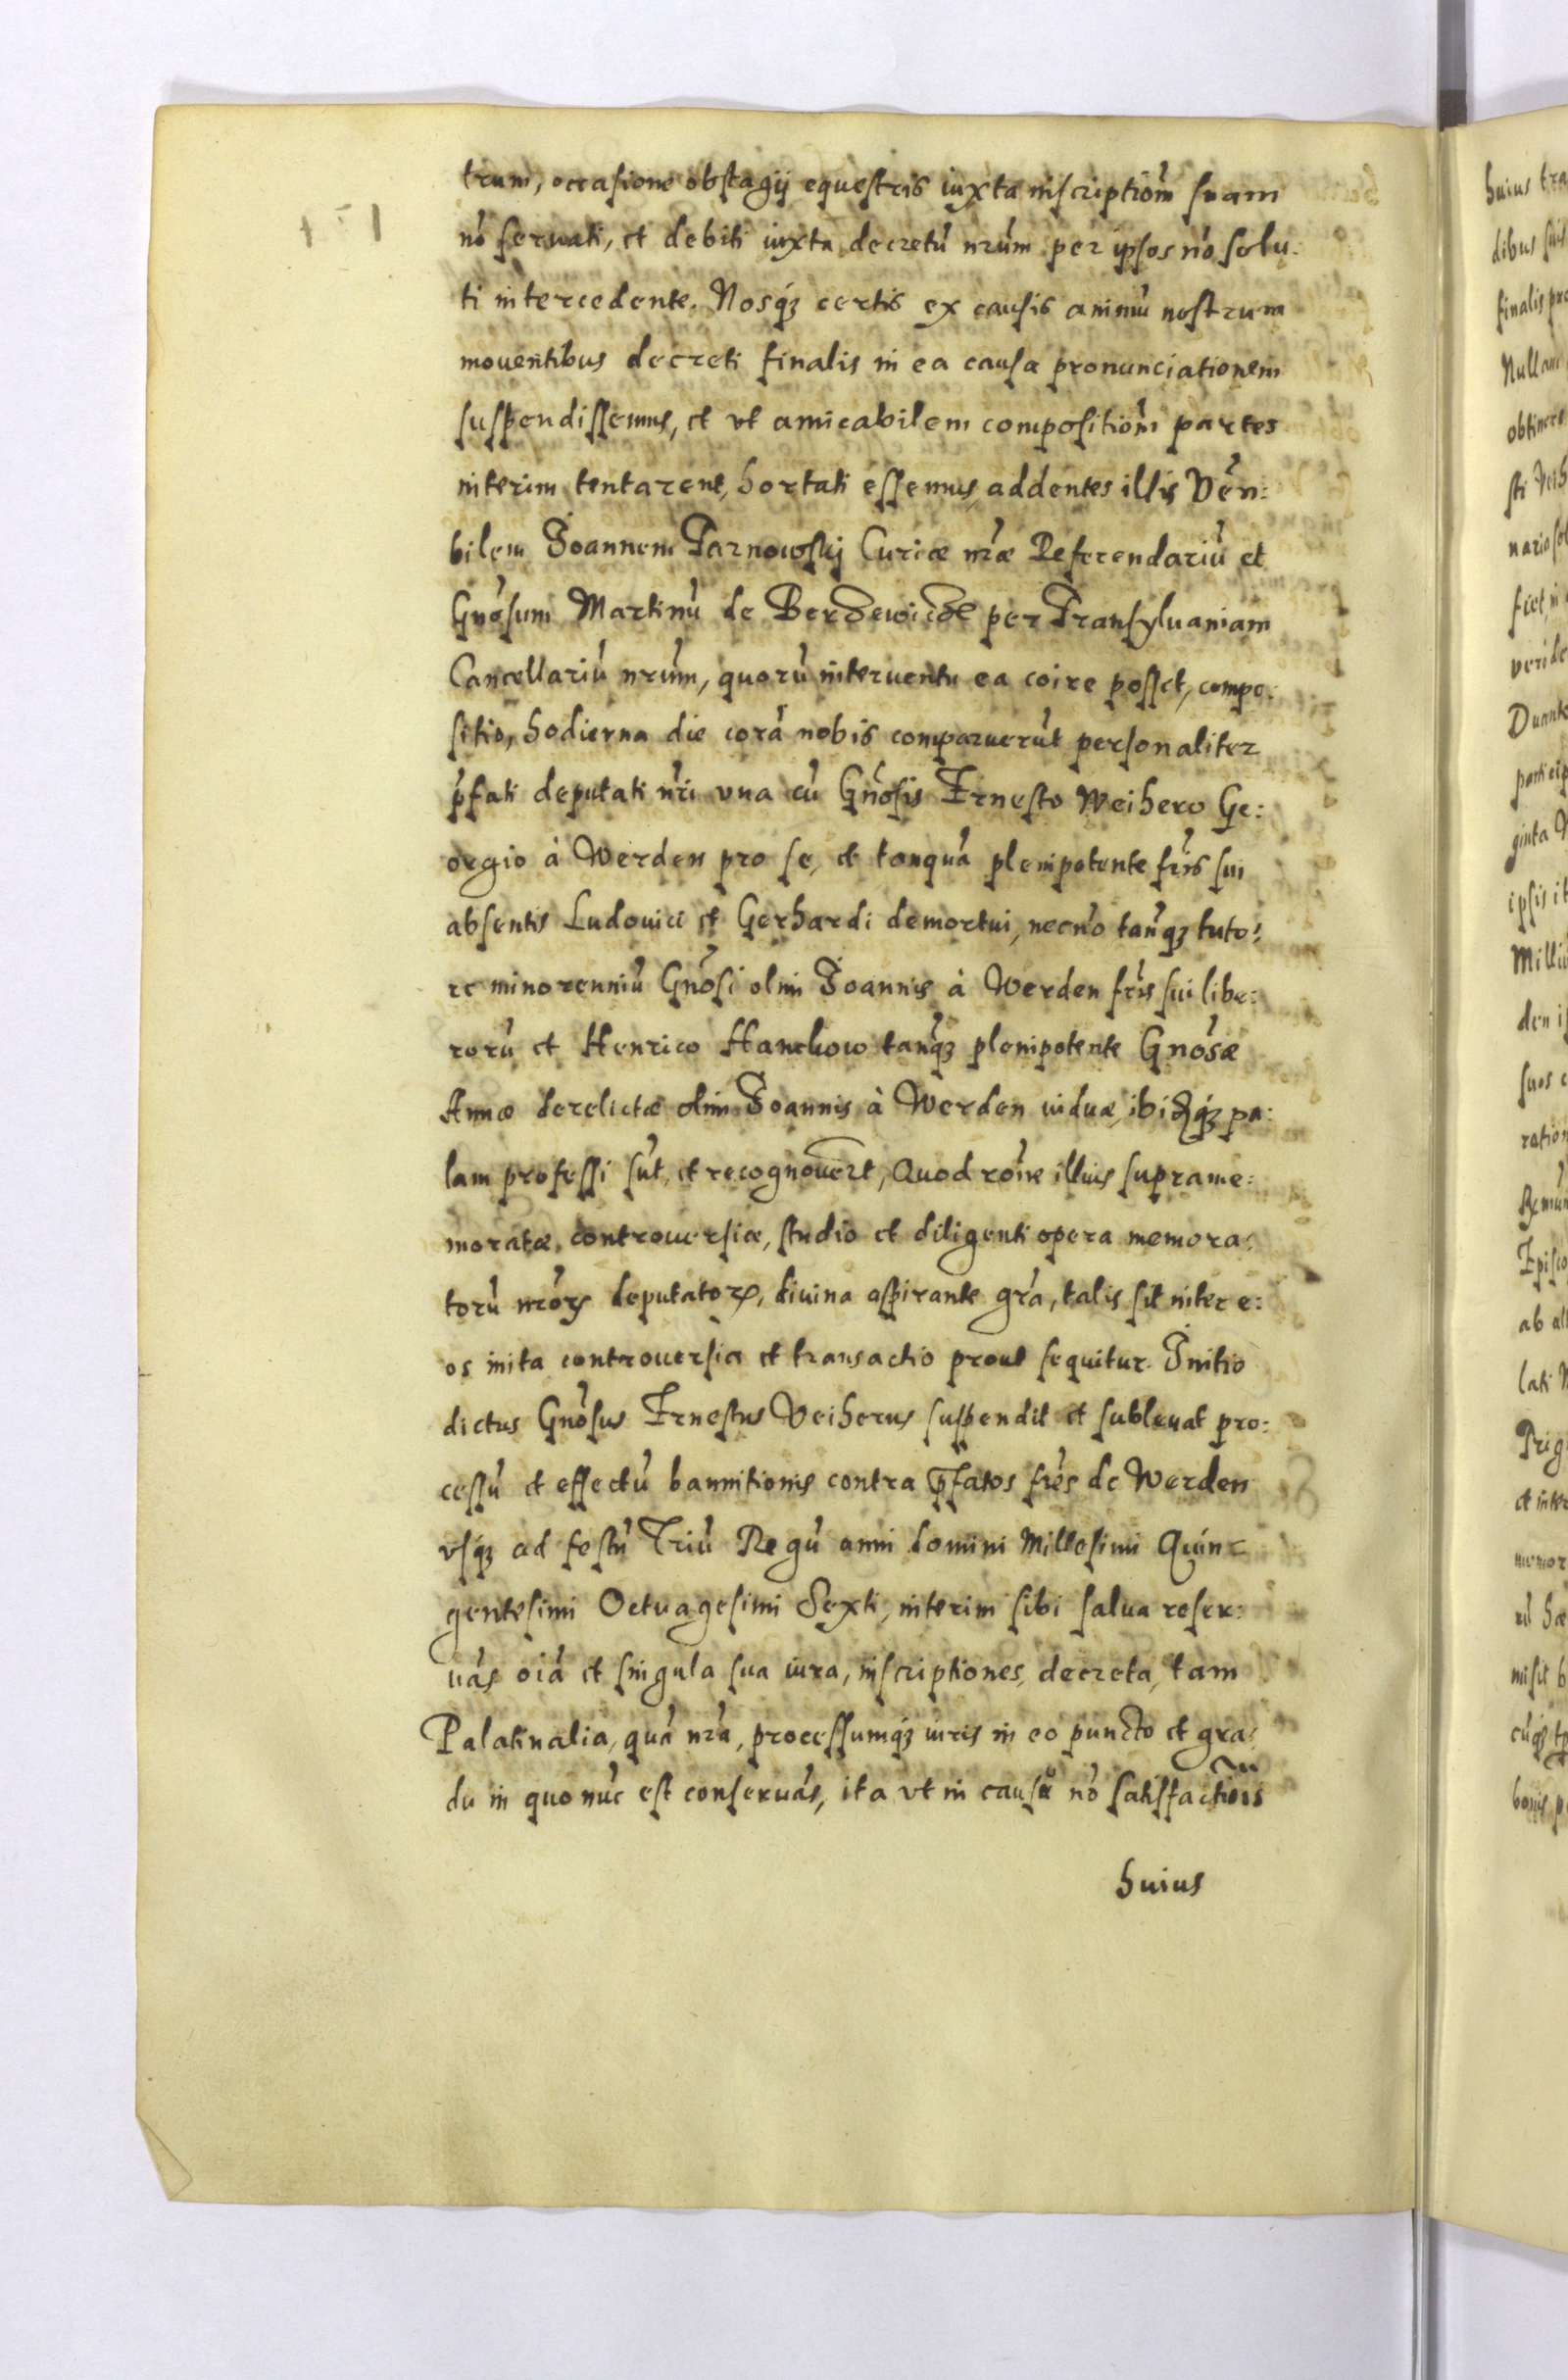 trum, occasione obstagij equestris iuxta inscriptiom̃ suam
nõ seruati, et debiti iuxta decretũ nrũm per ipsos nõ solu:
ti intercedente. Nosq́ʒ certis ex causis animũ nostrum
mouentibus decreti finalis in ea causa pronunciationem
suspendissemus, et vt amicabilem compositiom̃ partes
interim tentarent, hortati essemus, addentes illis Vẽn:
bilem Joannem Tarnowskj Curiæ nr̃æ Referendariũ et
Gnõsum Martinũ de Berzewicze per Transyluaniam
Cancellariũ nrũm, quorũ interuentu ea coire posset, compo:
sitio, hodierna die corã nobis comparuerũt personaliter
p̃fati deputati nr̃i vna cũ Gnõsis Ernesto Weihero Ge:
orgio à Werden pro se, et tanquã plenipotente fr̃is sui
absentis Ludouici et Gerhardi demortui, necnõ tanq̃ʒ tuto:
re minorenniũ Gnõsi olim Joannis à Werden fr̃is sui libe:
rorũ et Henrico Hanckow tanq̃ʒ plenipotente Gnõsæ
Annæ derelictæ olim Joannis à Werden viduæ, ibidq́ʒ pa:
lam professi sũt, et recognouer̃t, Quod rõne illius suprame:
moratæ, controuersiæ, studio et diligenti opera memora:
torũ nrõrꝝ deputatorꝝ, diuina aspirante gr̃a, talis sit inter e:
os inita controuersia et transactio prout sequitur. Initio
dictus Gnõsus Ernestus Veiherus suspendit et subleuat pro:
cessũ et effectũ bannitionis contra p̃fatos fr̃es de Werden
vsq́ʒ ad festũ Triũ Regũ anni domini Millesimi Quin:
gentesimi Octuagesimi Sexti, interim sibi salua reser:
uãs oĩa et singula sua iura, inscriptiones, decreta, tam
Palatinalia, quã nr̃a, processumq́ʒ iuris in eo puncto et gra:
du in quo nũc est conseruãs, ita vt in causa nõ satisfactiõis
huius